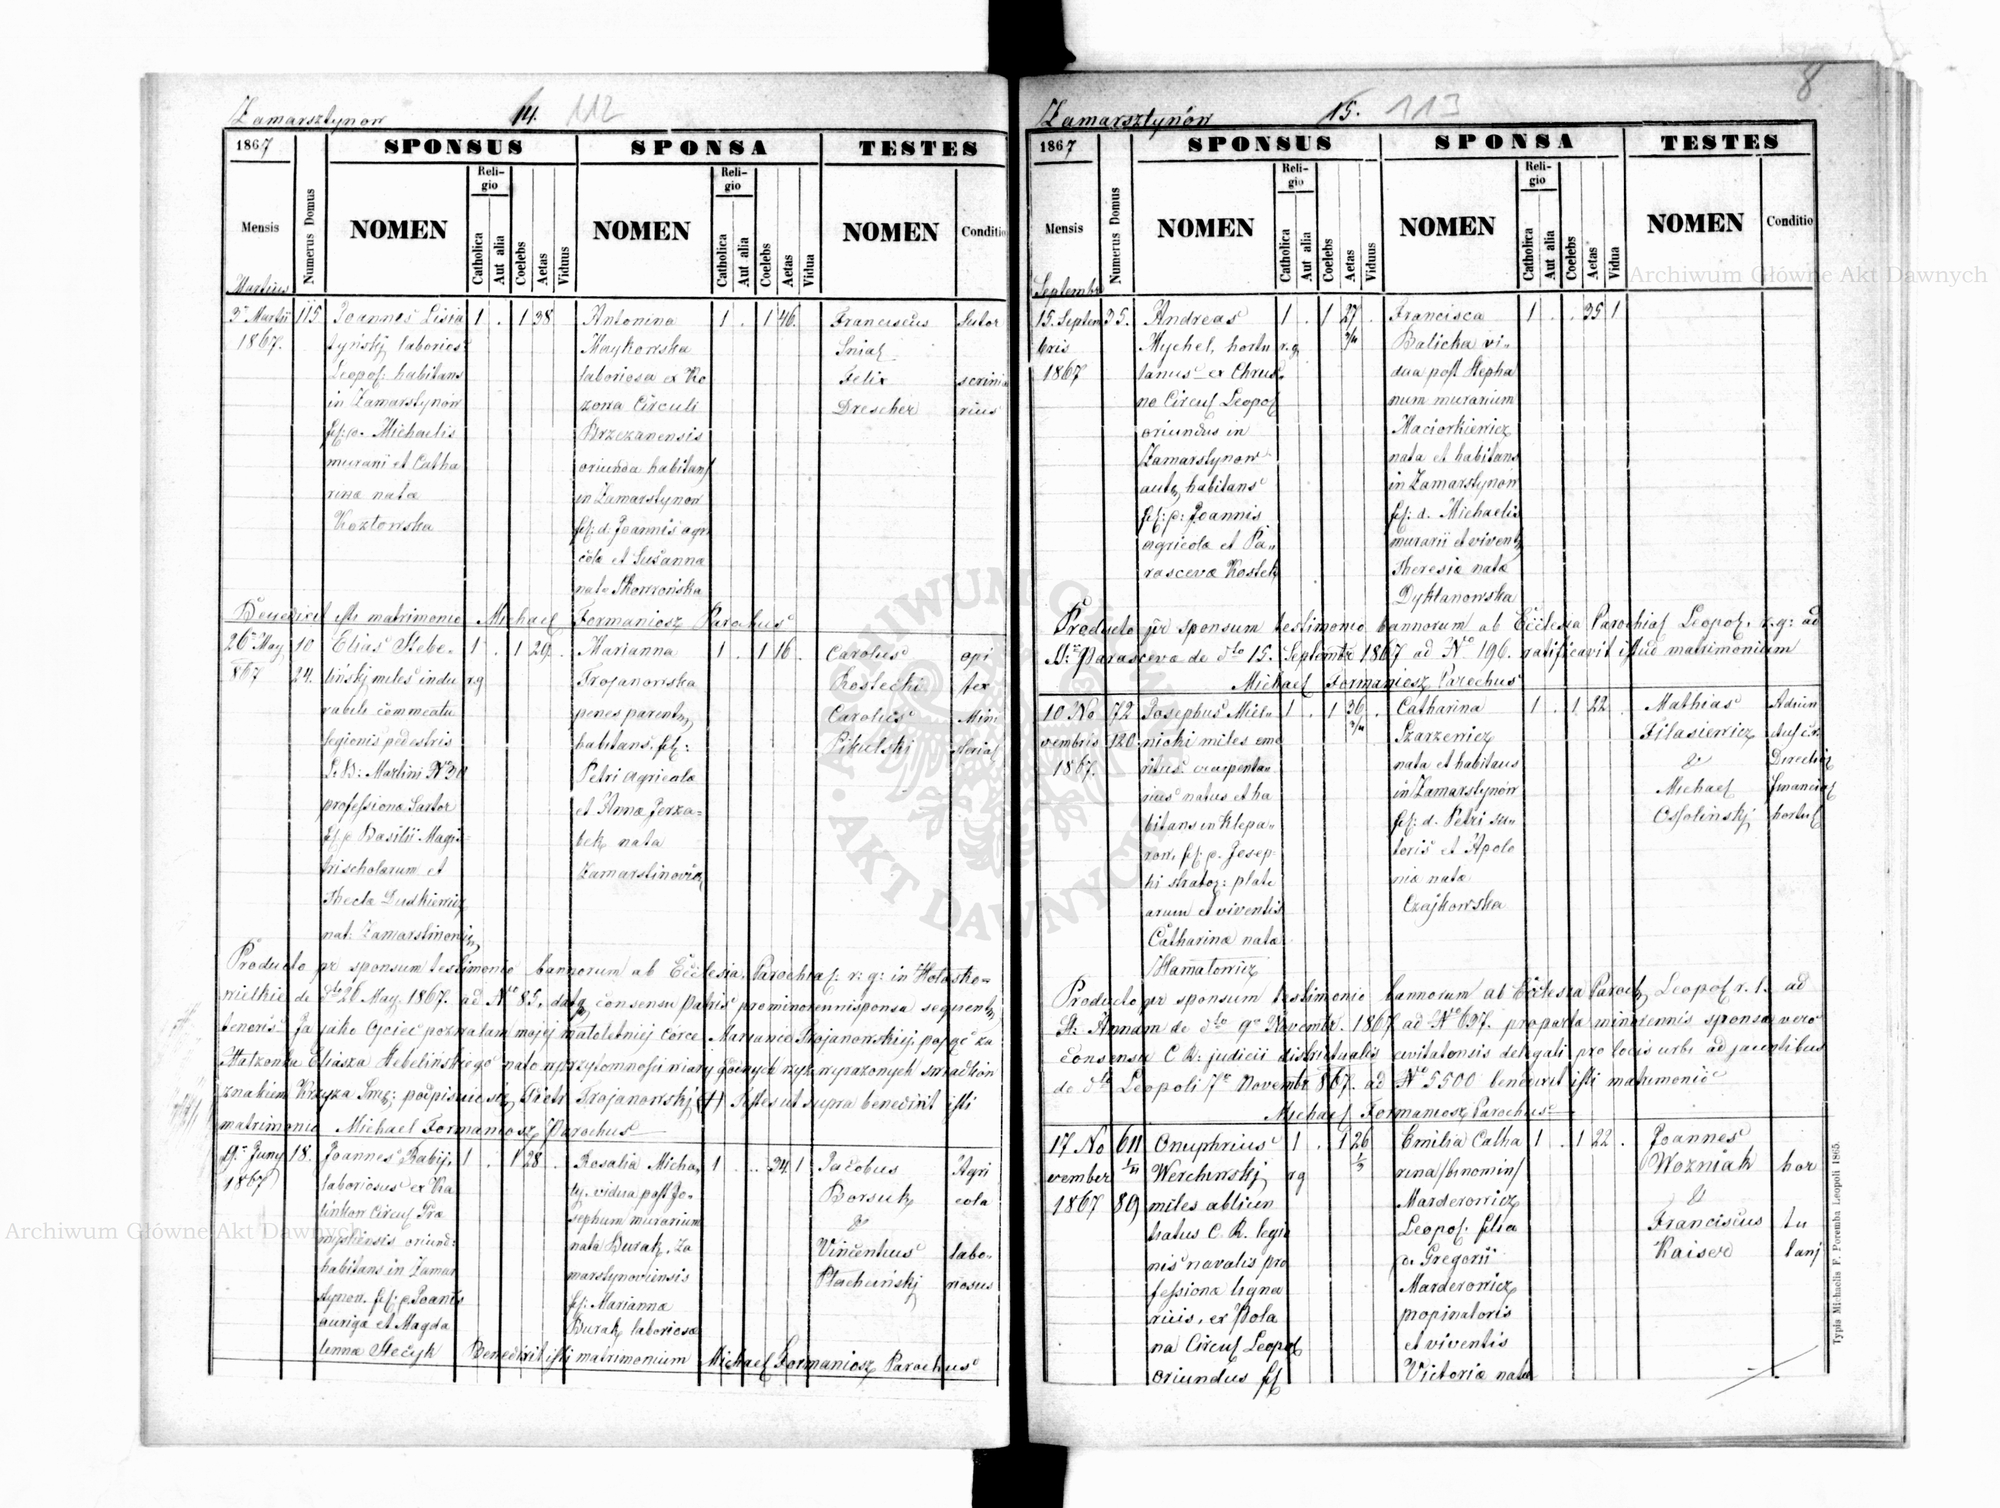 Zamarsztynow 14. 112
1867
SPONSUS SPONSA TESTES
Mensis
Numerus Domus
NOMEN
Religio
Catholica
Aut alia
Coelebs
Aetas
Viduus
NOMEN
Religio
Catholica
Aut alia
Coelebs
Aetas
Vidua
NOMEN
Conditio
Martius
3 Martii
1867.
115
Joannes Lisia
tyńskj laborios:
Leopol: habitans
in Zamarstynów
fil: p. Michaelis
murarii et Catha
rina nata
Kozłowska
1 . 1 38
Antonina
Maykowska
laboriosa ex Ko
zowa Circuli
Brzezanensis
oriunda habitans
in Zamarstynow
fil: d. Joannis agri
cola et Susanna
nata Skowrońska
1 . 1 46.
Franciscus
Sniaz
Felix
Drescher
Sutor
scrinia
rius
Benedixit isti matrimonio Michael Formaniosz Parochus
26 May
867
10
24.
Elias Hebe-
lińskj miles indu
rabili commeatu
legionis pedestris
L. B: Martini No 30
professione Sartor
fil: p Basilii Magi-
tri scholarum et
Thecla Duskiewicz
nat: Zamarstinowicz
1 . 1 29 .
r.g
Marianna
Trojanowska
penes parentes
habitans, fil:
Petri agricola
et Anna Jerza-
bek nata
Zamarstinovicz
1 . 1 16 .
Carolus
Kostecki
Carolus
Pikulski
opi
fex
Mini
sterial
Producto pr sponsum testimonio bannorum ab Ecclesia Parochial. r: g: in Hołosko-
wielkie de dto 26 May. 1867. ad No 85. data consensu Patris pro minorenni sponsa sequentis
tenoris Ja jako Ojciec pozwalam mojej małoletniej córce Mariance Trojanowskiej, pojąć za
Małżonka Eliasza Hebelińskiego na to w przytomności wiary godnych wyż wyrażonych świadków
znakiem Krzyża Smg: podpisuje się Piotr Trojanowskj (+) Testes ut supra benedixit isti
matrimonio Michael Formaniosz Parochus
9. Juny
1867
18.
Joannes Babij,
laboriosus ex Ka
linkow Circul Prze
myslensis oriund:
habitans in Zamar
stynow. fil: p. Joannis
auriga et Magda
lenna Stećyk
1 . 1 28 .
Rosalia Micha
ly. vidua post Jo-
sephum murarium
nata Burak, Za
marstynoviensis
fil: Marianna
Burak laboriosa
1 . . 34 1
Jacobus
Borsuk
&
Vincentius
Płachcińskj
Agri
cola
labo-
riosus
Benedixit isti matrimonium Michael Formaniosz Parochus
Zamarsztynów 15. 113
8
1867
SPONSUS SPONSA TESTES
Mensis
Numerus Domus
NOMEN
Religio
Catholica
Aut alia
Coelebs
Aetas
Viduus
NOMEN
Religio
Catholica
Aut alia
Coelebs
Aetas
Vidua
NOMEN
Conditio
Septembr
15. Septem
bris
1867
35.
Andreas
Mychel, hortu
lanus ex Chrus
no Circul Leopol
oriundus in
Zamarstynow
autem habitans
fil: p: Joannis
agricola et Pa-
rasceva Kostek
1 . 1 27 .
r.g.
Francisca
Balicka vi-
dua post Stepha
num murarium
Maciorkiewicz
nata et habitans
in Zamarstynow
fil: d. Michaelis
murarii et viventis
Theresia nata
Dyktanowska
1 . . 35 1
Producto pr sponsum testimonio bannorum ab Ecclesia Parochial Leopol. r. g: ad
S: Parasceva de dto 15. Septembr 1867 ad No 196. ratificavit istud matrimonium
Michael Formaniosz Parochus
10 No
vembris
1867.
72
120
Josephus Miel-
nicki miles eme
ritus carpenta-
rius natus et ha
bitans in Klepa-
row, fil: p. Josep
hi strator: plate
arum et viventis
Catharina nata
Hamatowicz
1 . 1 36 .
Catharina
Szarzewicz
nata et habitans
in Zamarstynów
fil: d. Petri su-
toris et Apolo
nia nata
Czajkowska
1 . 1 22 .
Mathias
Filasiewicz
&
Michael
Ossolinskj
Directio
financial
hortul
Producto pr sponsum testimonio bannorum ab Ecclesia Paroch. Leopol r. l. ad
St: Annam de dto 9 Novembr. 1867 ad No 637. pro parta minorennis sponsa vero
consensu C. R: judicii districtualis civitatensis delegati pro locis urbi adjacentibus
de dto Leopoli 7 Novembr 867. ad No 5500 benedixit isti matrimonio
Michael Formaniosz Parochus
17 No
vember
1867
611
89
Onuphrius
Werchinskj
miles ablicen
tiatus C. R. legio
nis navalis pro
fessione ligna
rius, ex Pola
na Circul Leopol
oriundus fil
1 . 1 26
rg
Emilia Catha
rina /binomin/
Marderowicz
Leopol. filia
a Gregorii
Marderowicz
propinatoris
et viventis
Victoria nata
1 . 1 22 .
Joannes
Wozniak
&
Franciscus
Kaiser
hor
tu
lanj
Typis Michaelis F. Poremba Leopoli 1865.
Archiwum Główne Akt Dawnych
Archiwum Główne Akt Dawnych
ARCHIWUM GŁÓWNE · AKT DAWNYCH ·